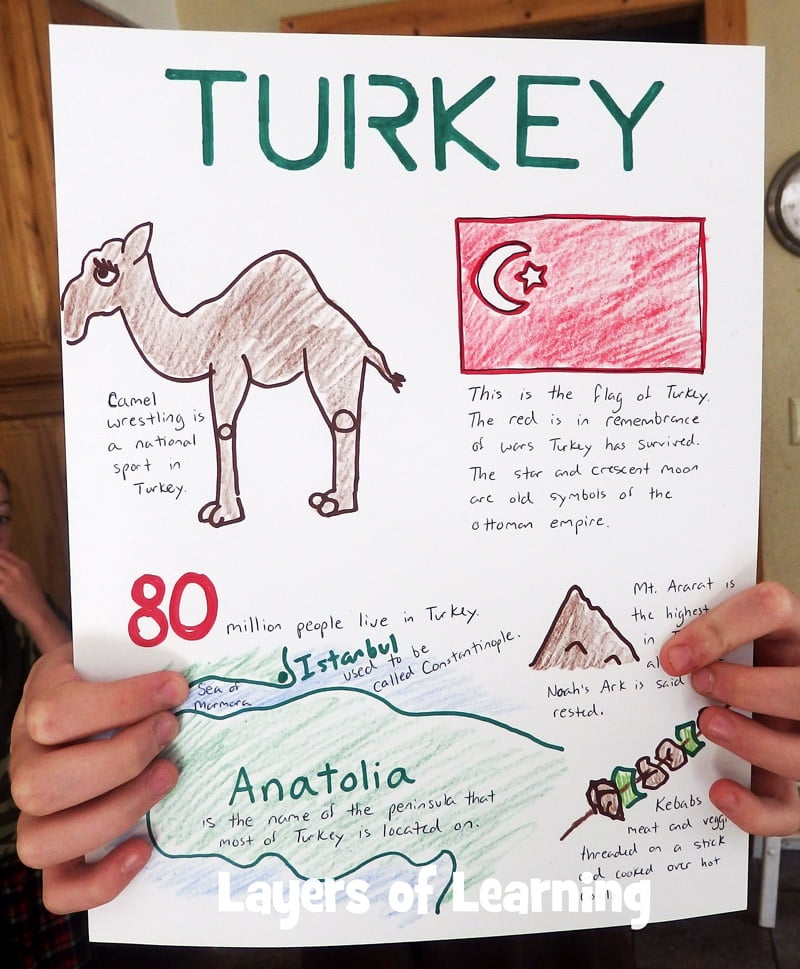 TURKEY
Camel
wrestling is
a national
sport in
Turkey.
This is the flag of Turkey.
The red is in remembrance
of wars Turkey has survived.
The star and crescent moon
are old symbols of the
ottoman empire.
80 million people live in Turkey.
Mt. Ararat is
the highest
in
Noah's Ark is said
rested.
Istanbul
used to be
called Constantinople.
Sea of
Marmara
Anatolia
is the name of the peninsula that
most of Turkey is located on.
Kebabs
meat and
threaded on a stick
and cooked over hot
Layers of Learning